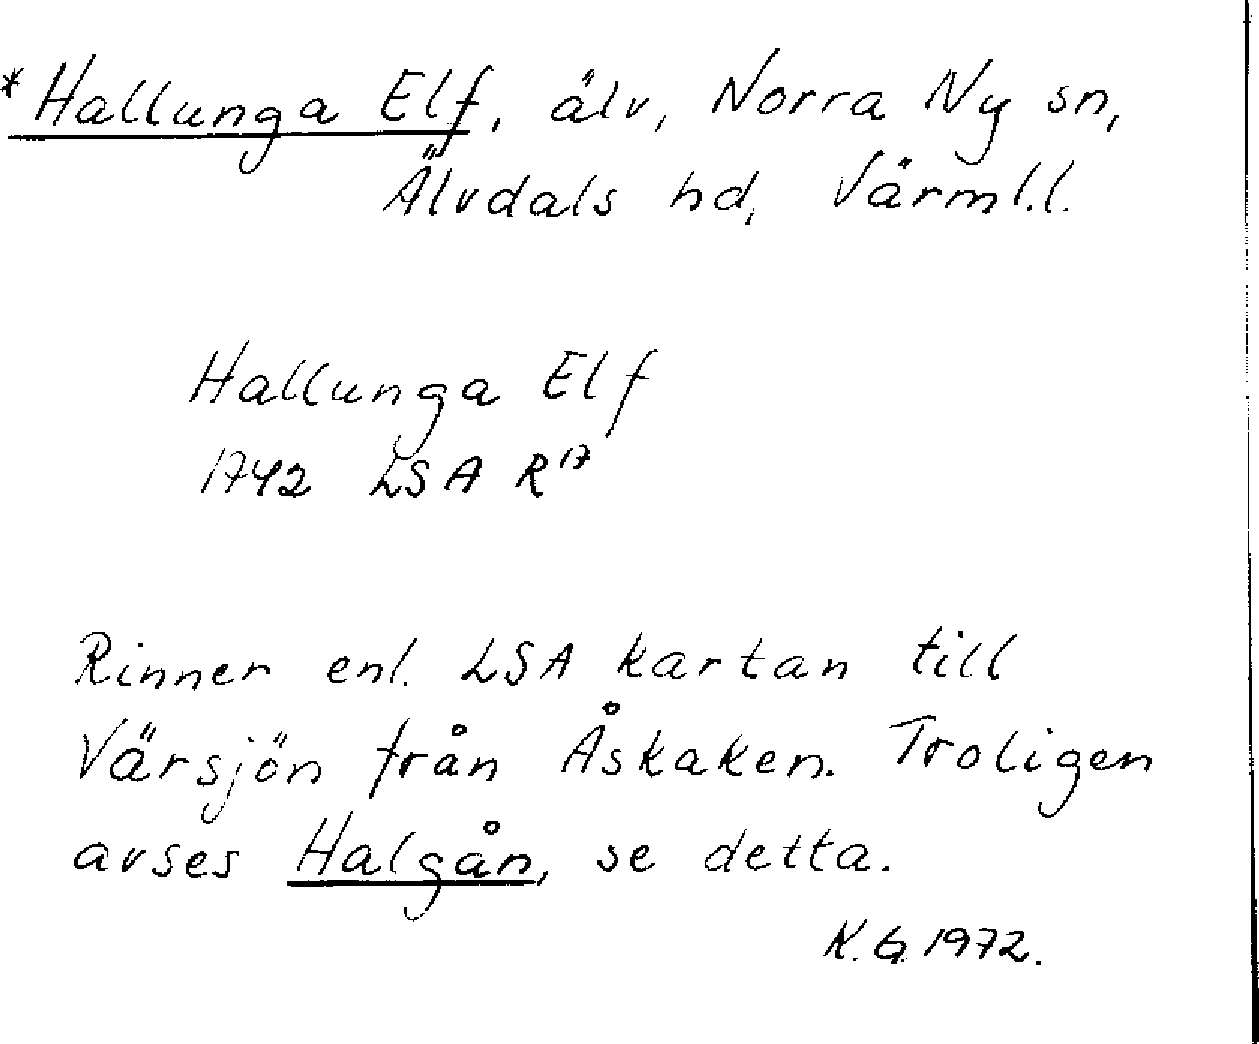 *Hallunga Elf, älv, Norra Ny sn,
Älvdals hd, Värml.l.
Hallunga Elf
1742 LSA R17
Rinner enl. LSA kartan till
Värsjön från Åskaken. Troligen
avses Halgån, se detta.
K.G. 1972.